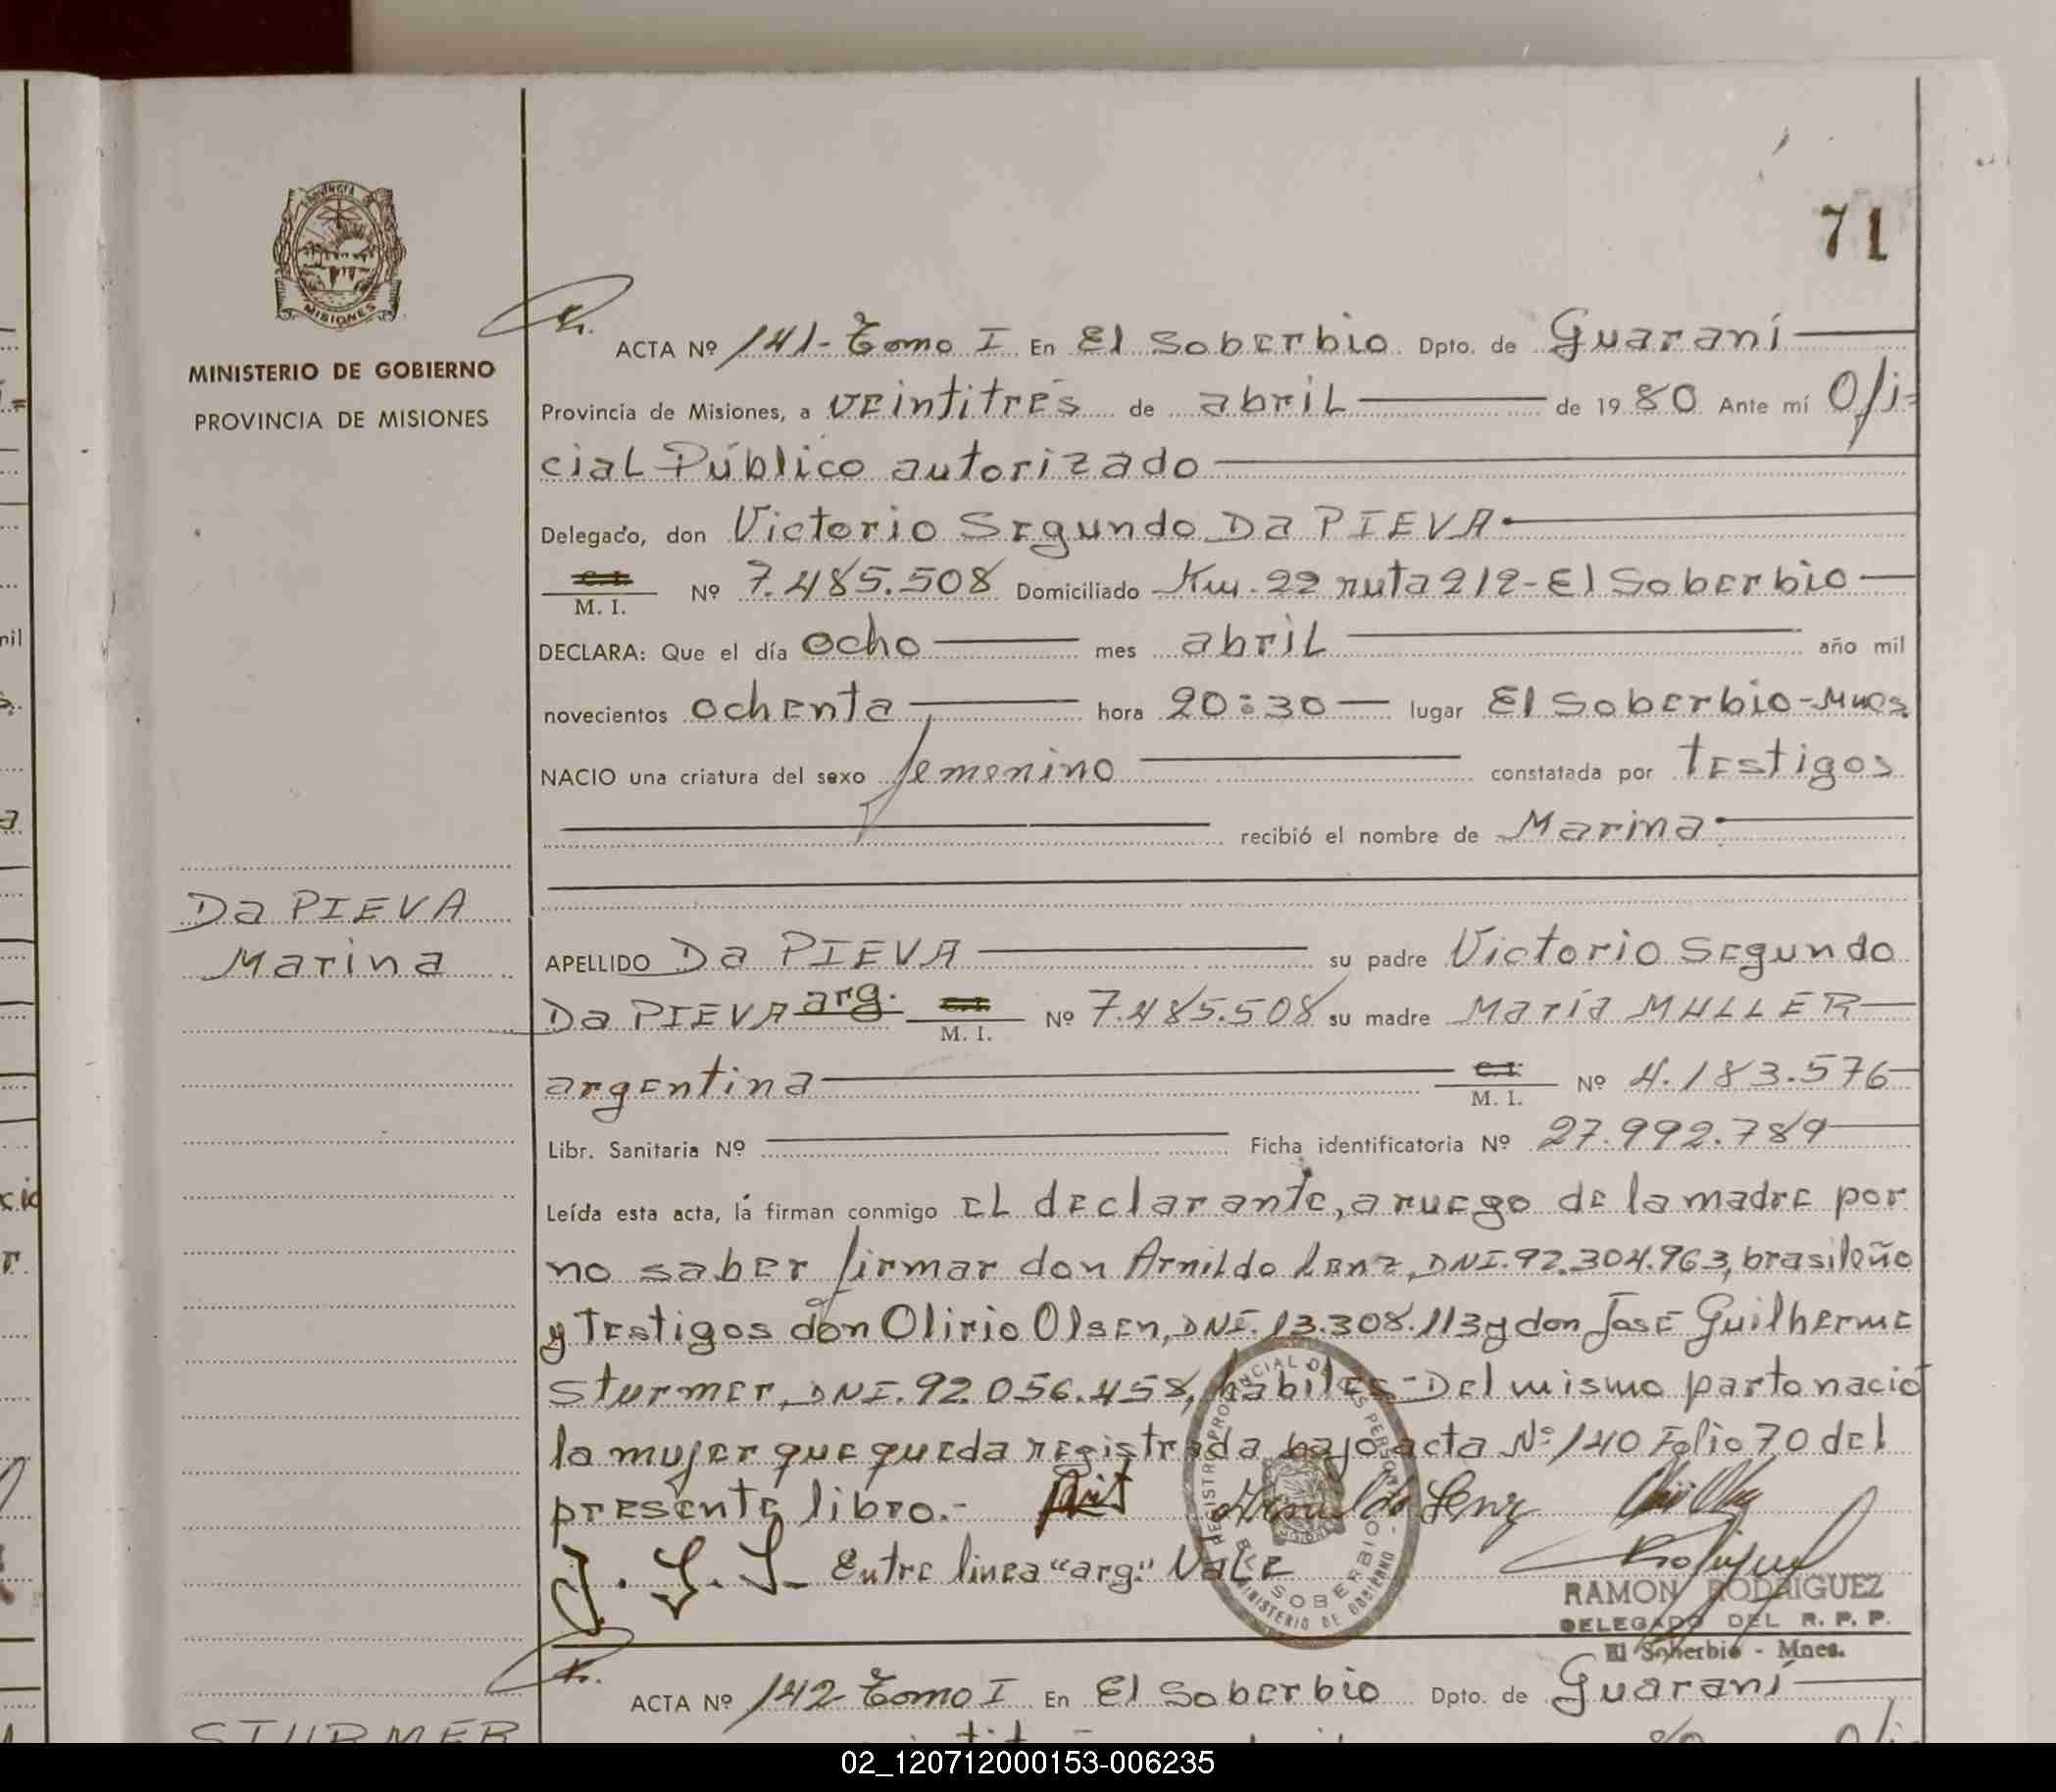 PROVINCIA DE
MISIONES
MINISTERIO DE GOBIERNO
PROVINCIA DE MISIONES
71
ACTA Nº 141- Tomo I En El Soberbio Dpto. de Guaraní
Provincia de Misiones, a veintitrés de abril de 1980 Ante mí Ofi=
cial Público autorizado
Delegado, don Victorio Segundo Da PIEVA
C. I.
M. I. Nº 7.485.508 Domiciliado Km. 22 ruta 212- El Soberbio
DECLARA: Que el día ocho mes abril año mil
novecientos ochenta hora 20:30 lugar El Soberbio-Mnes
NACIO una criatura del sexo femenino constatada por testigos
recibió el nombre de Marina
Da PIEVA
Marina
APELLIDO Da PIEVA su padre Victorio Segundo
Da PIEVA arg. C. I. M. I. Nº 7.485.508 su madre María MULLER
argentina C. I. M. I. Nº 4.183.576
Libr. Sanitaria Nº Ficha identificatoria Nº 27.992.789
Leída esta acta, la firman conmigo el declarante, a ruego de la madre por
no saber firmar don Arnildo Lenz, DNI. 92.304.963, brasileño
y testigos don Olirio Olsen, DNI. 13.308.113 y don José Guilherme
Sturmer, DNI. 92.056.458, hábiles- Del mismo parto nació
la mujer que queda registrada bajo acta Nº 140 Folio 70 del
presente libro.- Arnildo Lenz
J. G. S. Entre linea "arg." Vale
REGISTRO PROVINCIAL DE LAS PERSONAS
EL SOBERBIO
MINISTERIO DE GOBIERNO
RAMON RODRIGUEZ
DELEGADO DEL R. P. P.
El Soberbio - Mnes.
ACTA Nº 142- Tomo I En El Soberbio Dpto. de Guaraní
STURMER
02_120712000153-006235